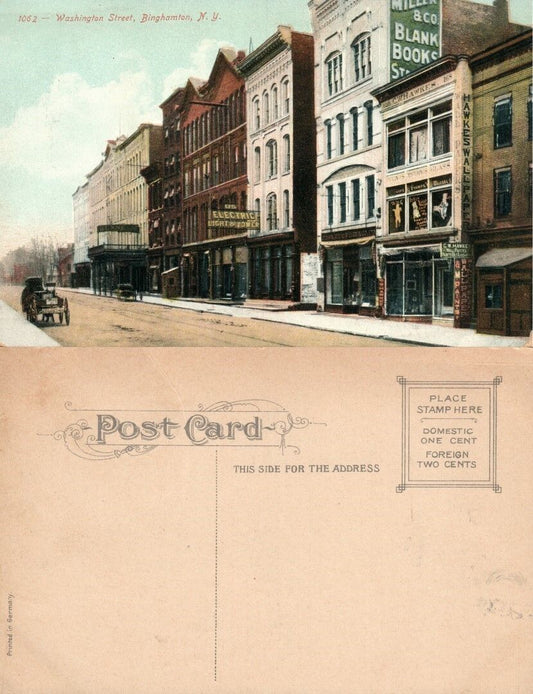 1062 — Washington Street, Binghamton, N. Y.
MILLER
& CO
BLANK
BOOKS
C. HAWKES
HAWKES WALL PAPER
ELECTRIC
LIGHT & POWER
WALL PAPER
Post Card
THIS SIDE FOR THE ADDRESS
PLACE
STAMP HERE
DOMESTIC
ONE CENT
FOREIGN
TWO CENTS
Printed in Germany.